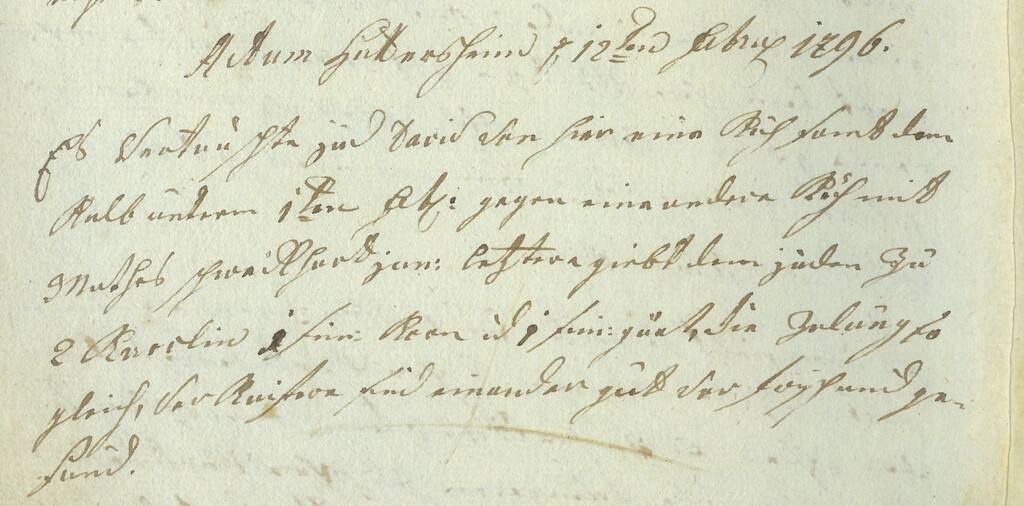 Actum Hattersheim d, 12ten Febru 1796.
Es Vertauschte jud David von hier eine Küh sambt dem
Kalb unterm 1ten Feb: gegen eine andere Küh mit
Mathes schweickhart jun: letztere giebt dem juden Zu
2 Karolin 1 Sim: Korn ud 1 Sim: die Zalung so
gleich, Verkäufere sind einander gut vor und ge-
sund.